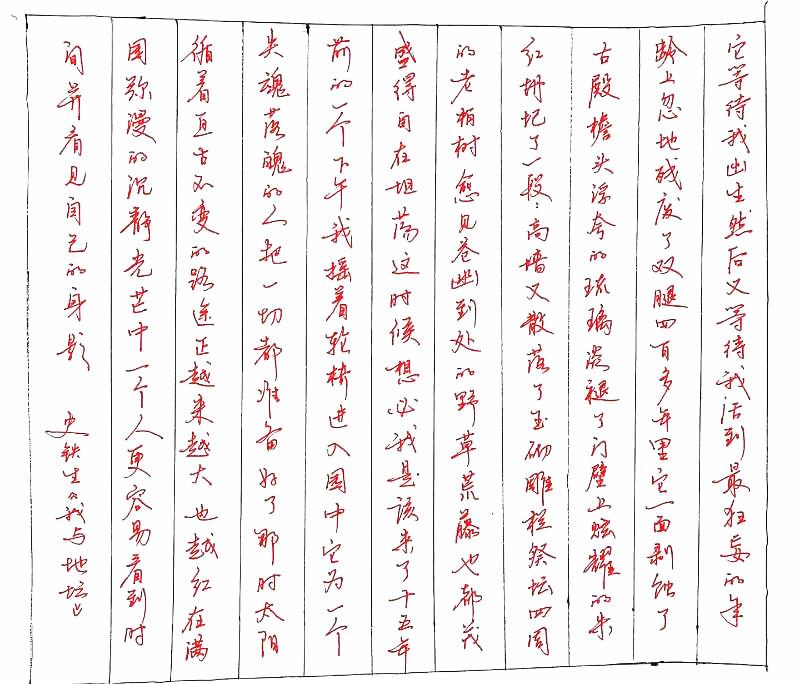 它等待我出生然后又等待我活到最狂妄的年
龄上忽地残废了双腿四百多年里它一面剥蚀了
古殿檐头浮夸的琉璃淡褪了门壁上炫耀的朱
红坍圮了一段:高墙又散落了玉砌雕栏祭坛四周
的老柏树愈见苍幽到处的野草荒藤也都茂
盛得自在坦荡这时候想必我是该来了十五年
前的一个下午我摇着轮椅进入园中它为一个
失魂落魄的人把一切都准备好了那时太阳
循着亘古不变的路途正越来越大也越红在满
园弥漫的沉静光芒中一个人更容易看到时
间并看见自己的身影 史铁生《我与地坛》